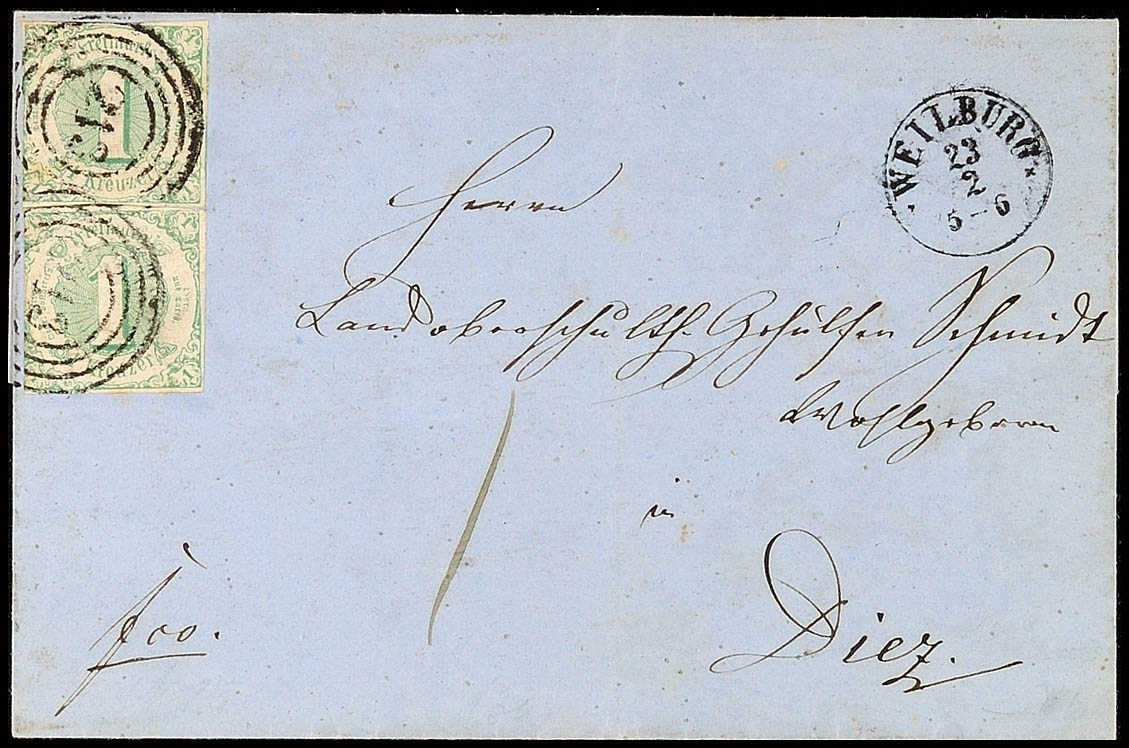 Freimarke
1
Kreuzer
Freimarke
1
Kreuzer
WEILBURG
23
2
5-6
Herrn
Landoberschulth. Gehülfen Schmidt
Wohlgeboren
in
Diez.
1
fco.